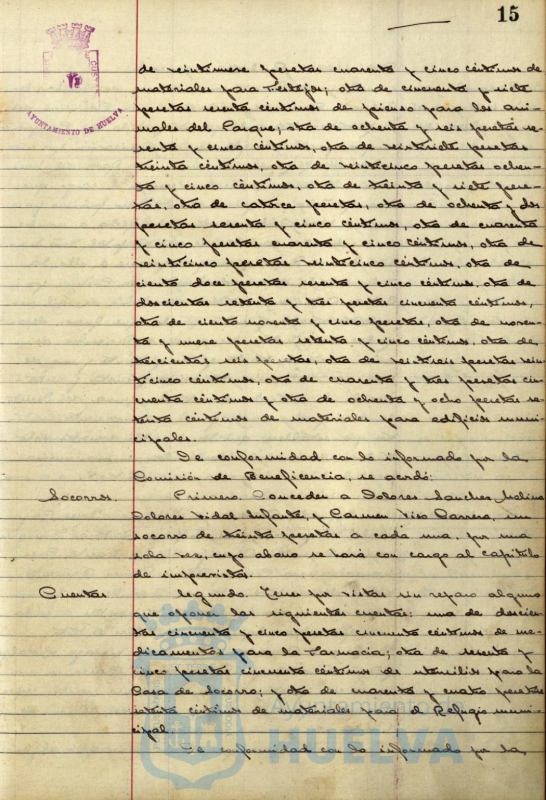 15
AYUNTAMIENTO DE HUELVA
de veintinueve pesetas cuarenta y cinco céntimos de
materiales para festejos; otra de cincuenta y siete
pesetas sesenta céntimos de pienso para los ani-
males del Parque; otra de ochenta y seis pesetas se-
senta y cinco céntimos, otra de veintisiete pesetas
treinta céntimos, otra de veinticinco pesetas ochen-
ta y cinco céntimos, otra de treinta y siete pese-
tas, otra de catorce pesetas, otra de ochenta y dos
pesetas sesenta y cinco céntimos, otra de cuarenta
y cinco pesetas cuarenta y cinco céntimos, otra de
veinticinco pesetas veinticinco céntimos, otra de
ciento doce pesetas sesenta y cinco céntimos, otra de
doscientas setenta y tres pesetas cincuenta céntimos,
otra de ciento noventa y cinco pesetas, otra de noven-
ta y nueve pesetas setenta y cinco céntimos, otra de
trescientas seis pesetas, otra de veintiseis pesetas vein-
ticinco céntimos, otra de cuarenta y tres pesetas cin-
cuenta céntimos y otra de ochenta y ocho pesetas se-
tenta céntimos de materiales para edificios muni-
cipales.
De conformidad con lo informado por la
Comisión de Beneficencia, se acordó:
Socorros. Primero. Conceder a Dolores Sanchez Molina
Dolores Vidal Infante, y Carmen Viso Barrera, un
socorro de treinta pesetas a cada una, por una
sola vez, cuyo abono se hará con cargo al capítulo
de imprevistos.
Cuentas Segundo. Tener por vistas sin reparo alguno
que oponer las siguientes cuentas: una de doscien-
tas cincuenta y cinco pesetas cincuenta céntimos de me-
dicamentos para la Farmacia; otra de sesenta y
cinco pesetas cincuenta céntimos de utensilios para la
Casa de Socorro; y otra de cuarenta y cuatro pesetas
céntimos de materiales para el Refugio muni-
cipal.
De conformidad con lo informado por la
Ayuntamiento de
HUELVA